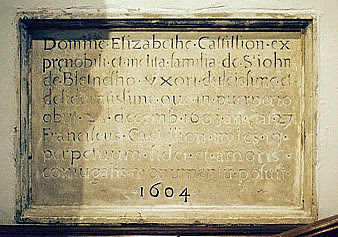 Domine Elizabethe Castillion ex
prenobili et inclita familia de S'iohn
de Bletnesho · vxori dulcissime et
que in puerperio
obijt 21 decemb 1603 27
Franciscus Castillion miles in
perpetuum fidei et amoris
coniugalis monumentum posuit
1604